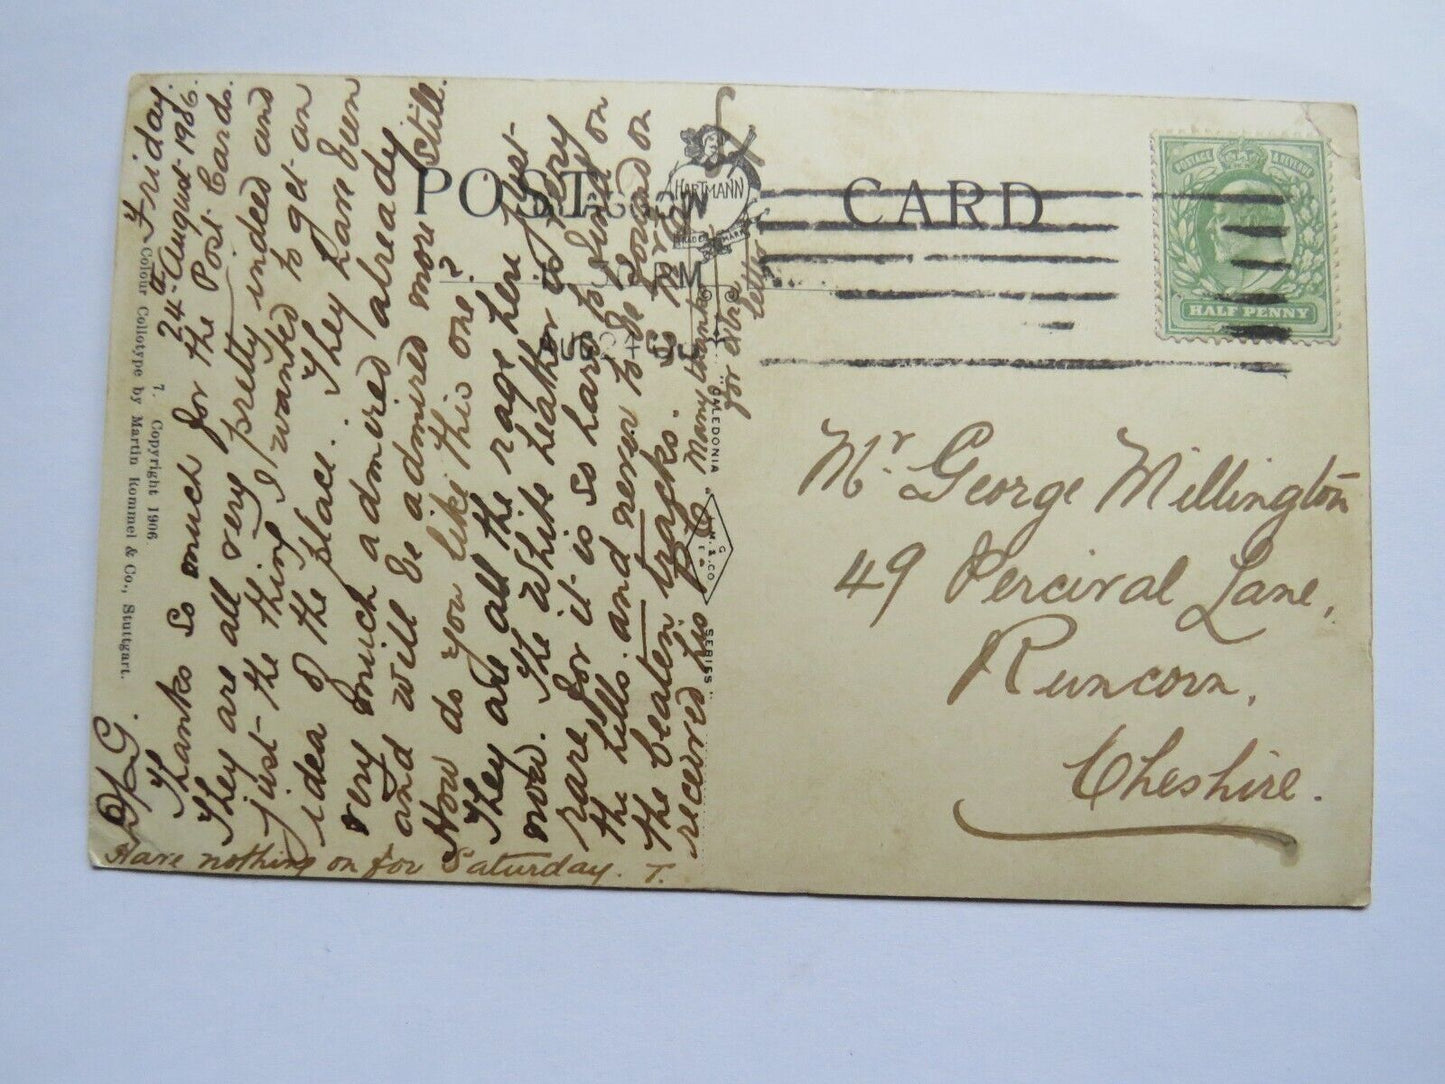 Friday
24th August 1906.
Dr G.
Thanks so much for the Post Cards.
They are all very pretty indeed and
just the thing I wanted to get an
idea of the place. They have been
very much admired already
and will be admired more still.
How do you like this one?
They are all the rage here just
now. The White heather is very
rare for it is so hard to find on
the hills. and never to be found on
the beaten tracks.
received his P.C. Many thanks
for extra
letter
Have nothing on for Saturday. T.
7. Copyright 1906.
Colour Collotype by Martin Rommel & Co., Stuttgart.
POST CARD
HARTMANN
TRADE MARK
GLASGOW
PM
AUG 24 06
"CALEDONIA" SERIES"
G
M. & CO
POSTAGE & REVENUE
HALF PENNY
Mr. George Millington
49 Percival Lane,
Runcorn,
Cheshire.